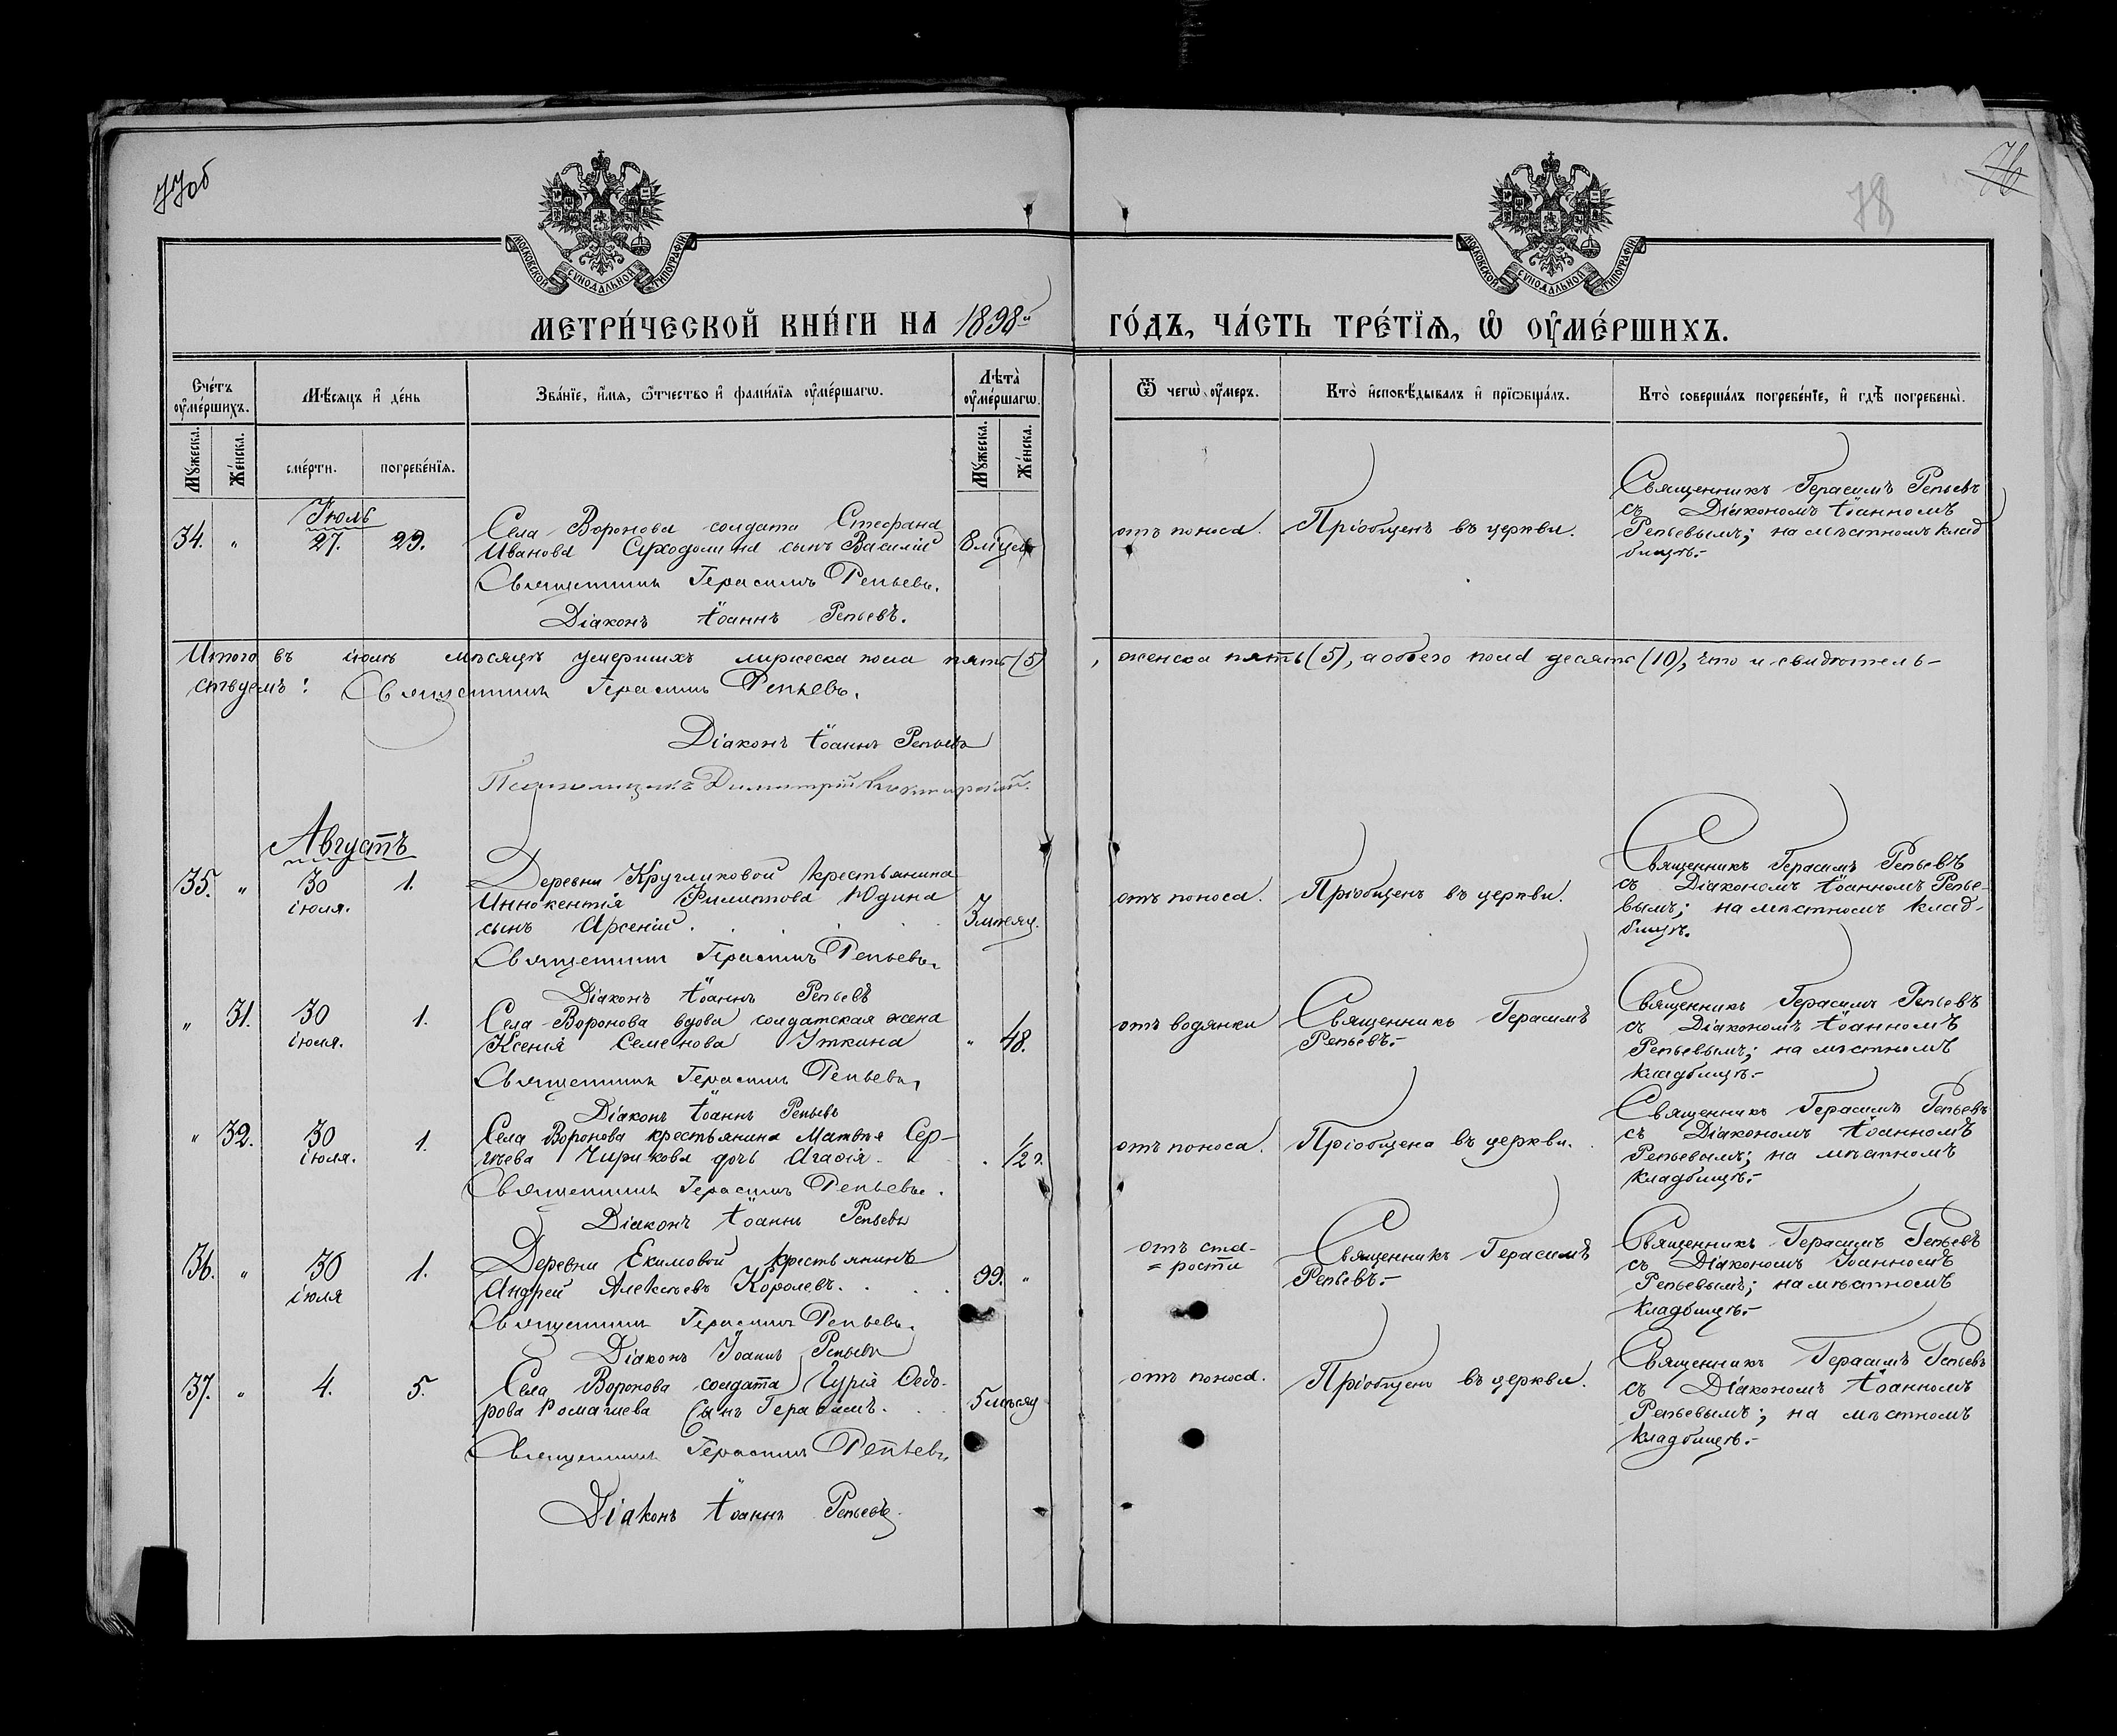 77об
78
76
МОСКОВСКОЙ СѴНОДАЛЬНОЙ ТИПОГРАФІИ
МОСКОВСКОЙ СѴНОДАЛЬНОЙ ТИПОГРАФІИ
МЕТРИ́ЧЕСКОЙ КНИ́ГИ НА 1898й ГО́ДЪ, ЧА́СТЬ ТРЕ́ТЇѦ, Ѡ҆ ОУ҆МЕ́РШИХЪ.
Сче́тъ оу҆ме́ршихъ.
Мꙋ́жеска.
Же́нска.
Мѣ́сяцъ и҆ де́нь
сме́рти.
погребе́нїѧ.
Зва́нїе, и҆́мѧ, ѻ҆́тчество и҆ фами́лїѧ оу҆ме́ршагѡ.
Лѣ́та оу҆ме́ршагѡ.
Мꙋ́жеска.
Же́нска.
Ѿ чегѡ̀ оу҆́меръ.
Кто̀ и҆сповѣ́дывалъ и҆ прїѡбща́лъ.
Кто̀ соверша́лъ погребе́нїе, и҆ гдѣ̀ погребены̀.
Іюль
34. „ 27. 29.
Села Воронова солдата Стефана
Иванова Суходолина сынъ Василій
8 мцевъ
отъ поноса.
Пріобщенъ въ церкви.
Священникъ Герасимъ Репьевъ
съ Діакономъ Іоанномъ
Репьевымъ; на мѣстномъ клад
бищѣ.-
Священникъ Герасимъ Репьевъ.
Діаконъ Іоаннъ Репьевъ.
Итого въ іюлѣ мѣсяцѣ умершихъ мужеска пола пять (5), женска пять (5), а обоего пола десять (10), что и свидѣтель-
ствуемъ: Священникъ Герасимъ Репьевъ.
Діаконъ Іоаннъ Репьевъ
Псаломщикъ Димитрій
Августъ
35. „ 30 іюля. 1.
Деревни Кругликовой крестьянина
Иннокентія Филиппова Юдина
сынъ Арсеній.
3 мѣсяц.
отъ поноса.
Пріобщенъ въ церкви.
Священникъ Герасимъ Репьевъ
съ Діакономъ Іоанномъ Репье-
вымъ; на мѣстномъ клад-
бищѣ.
Священникъ Герасимъ Репьевъ.
Діаконъ Іоаннъ Репьевъ
„ 31. 30 іюля. 1.
Села Воронова вдова солдатская жена
Ксенія Семенова Уткина
„ 48.
отъ водянки
Священникъ Герасимъ
Репьевъ.-
Священникъ Герасимъ Репьевъ
съ Діакономъ Іоанномъ
Репьевымъ; на мѣстномъ
кладбищѣ.-
Священникъ Герасимъ Репьевъ.
Діаконъ Іоаннъ Репьевъ
„ 32. 30 іюля. 1.
Села Воронова крестьянина Матвѣя Сер-
гѣева Чирикова дочь Агафія.
1/2 г.
отъ поноса.
Пріобщена въ церкви.
Священникъ Герасимъ Репьевъ
съ Діакономъ Іоанномъ
Репьевымъ; на мѣстномъ
кладбищѣ.-
Священникъ Герасимъ Репьевъ.
Діаконъ Іоаннъ Репьевъ
36. „ 30 іюля 1.
Деревни Екимовой крестьянинъ
Андрей Алексѣевъ Королевъ.
99. „
отъ ста-
=рости
Священникъ Герасимъ
Репьевъ.-
Священникъ Герасимъ Репьевъ
съ Діакономъ Іоанномъ
Репьевымъ; на мѣстномъ
кладбищѣ.-
Священникъ Герасимъ Репьевъ.
Діаконъ Іоаннъ Репьевъ
37. „ 4. 5.
Села Воронова солдата Гурія Ѳедо-
рова Сынъ Герасимъ.
5 мѣсяц
отъ поноса.
Пріобщенъ въ церкви.
Священникъ Герасимъ Репьевъ
съ Діакономъ Іоанномъ
Репьевымъ; на мѣстномъ
кладбищѣ.-
Священникъ Герасимъ Репьевъ
Діаконъ Іоаннъ Репьевъ.